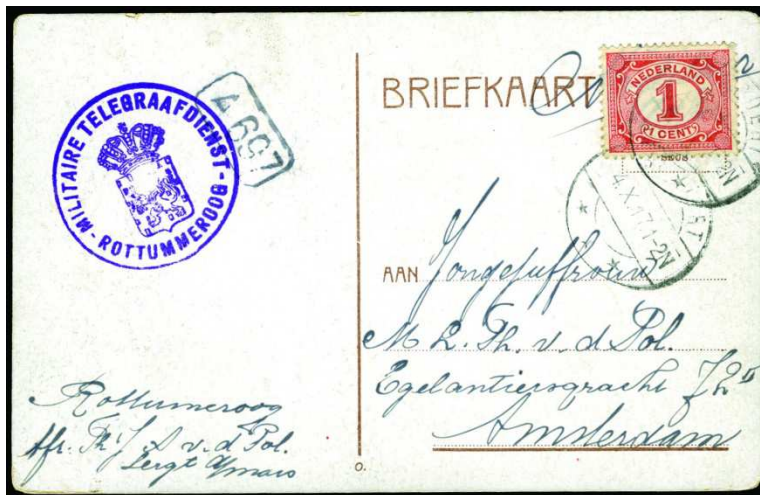 MILITAIRE TELEGRAAFDIENST - ROTTUMMEROOG -
4697
BRIEFKAART
NEDERLAND
1
(1 CENT)
4.X.17.1-2N
AAN Jongejuffrouw
M L. Th. v. d Pol.
Egelantiersgracht 72 II
Amsterdam
Rottumeroog
Afr. Th J A v. d Pol.
Sergt
o.